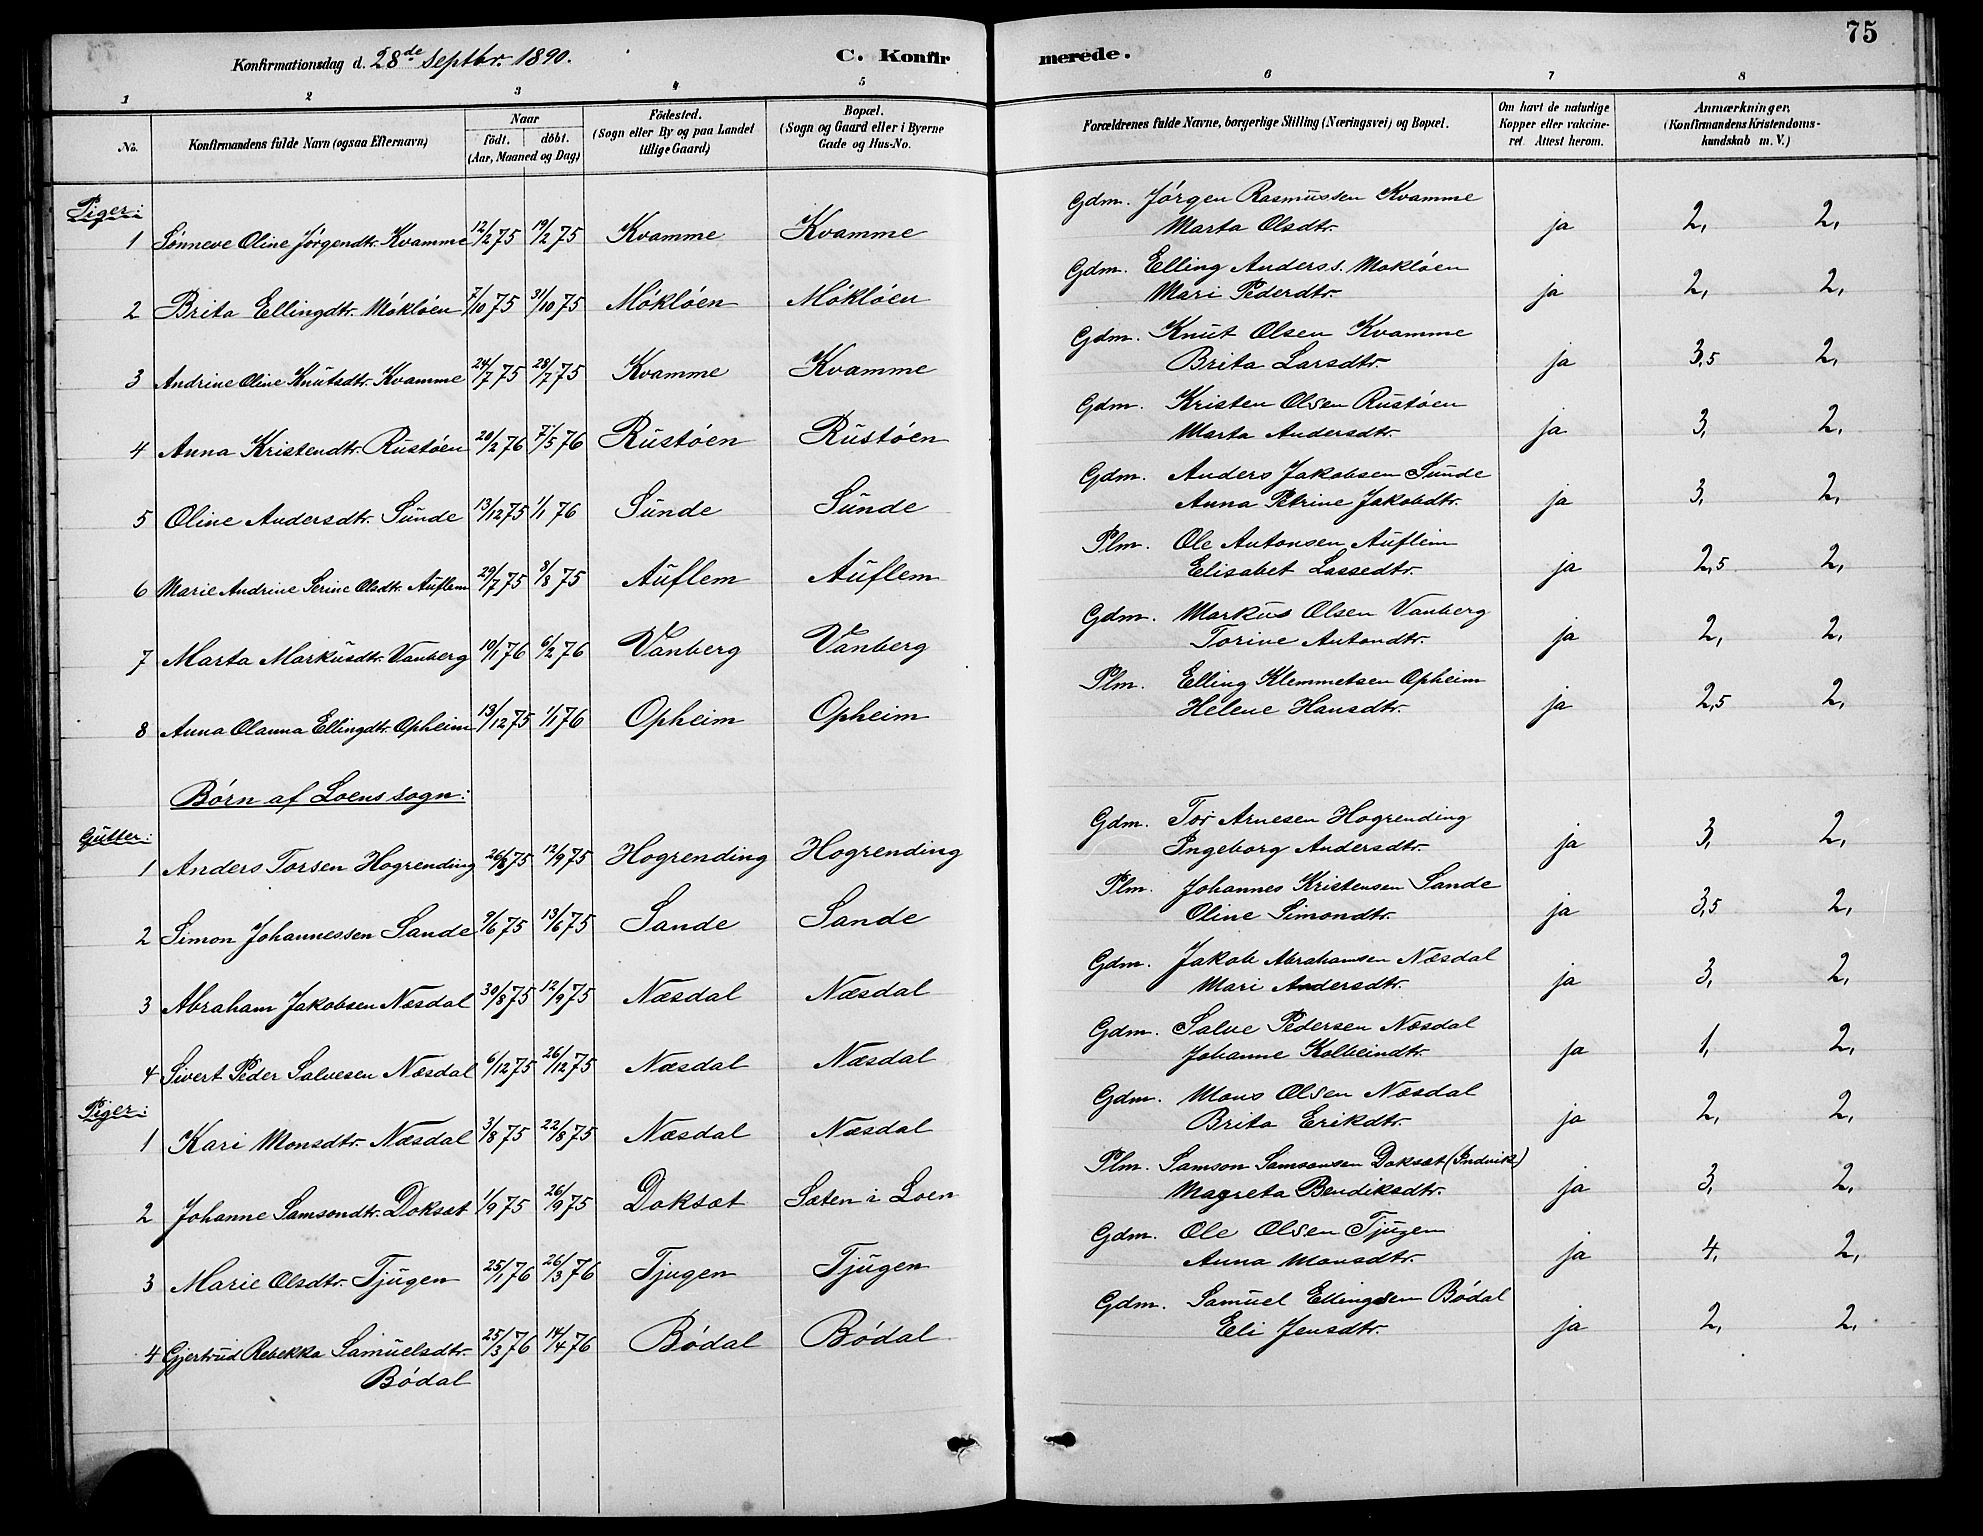 75
Konfirmationsdag d. 28de Septbr. 1890.
C. Konfirmerede.
1 2 3 4 5 6 7 8
No.
Konfirmandens fulde Navn (ogsaa Efternavn)
Naar
födt. döbt.
(Aar, Maaned og Dag)
Födested.
(Sogn eller By og paa Landet
tillige Gaard)
Bopæl.
(Sogn og Gaard eller i Byerne
Gade og Hus-No.
Forældrenes fulde Navne, borgerlige Stilling (Næringsvei) og Bopæl.
Om havt de naturlige
Kopper eller vakcine-
ret. Attest herom.
Anmærkninger.
(Konfirmandens Kristendoms-
kundskab m. V.)
Piger:
1 Sønneve Oline Jørgendtr. Kvamme 12/2 75 19/2 75 Kvamme Kvamme Gdm. Jørgen Rasmussen Kvamme
Marta Olsdtr. ja 2, 2,
2 Brita Ellingdtr. Møkløen 7/10 75 31/10 75 Møkløen Møkløen Gdm. Elling Anders s. Mokløen
Mari Pederdtr. ja 2, 2,
3 Andrine Oline Knutsdtr. Kvamme 24/7 75 28/7 75 Kvamme Kvamme Gdm. Knut Olsen Kvamme
Brita Larsdtr. ja 3,5 2,
4 Anna Kristendtr. Rustøen 20/2 76 7/5 76 Rustøen Rustøen Gdm. Kristen Olsen Rustøen
Marta Andersdtr. ja 3, 2,
5 Oline Andersdtr. Sunde 13/12 75 1/1 76 Sunde Sunde Gdm. Anders Jakobsen Sunde
Anna Petrine Jakobdtr. ja 3, 2,
6 Marie Andrine Serine Olsdtr. Auflem 29/7 75 8/8 75 Auflem Auflem Plm. Ole Antonsen Auflem
Elisabet Lassedtr. ja 2,5 2,
7 Marta Markusdtr. Vanberg 10/1 76 6/2 76 Vanberg Vanberg Gdm. Markus Olsen Vanberg
Torine Antondtr. ja 2, 2,
8 Anna Olanna Ellingdtr. Opheim 13/12 75 1/1 76 Opheim Opheim Plm. Elling Klemmetsen Opheim
Helene Hansdtr. ja 2,5 2,
Børn af Loens sogn:
Gutter:
1 Anders Torsen Hogrending 26/8 75 12/9 75 Hogrending Hogrending Gdm. Tor Arnesen Hogrending
Ingeborg Andersdtr. ja 3, 2,
2 Simon Johannessen Sande 9/6 75 13/6 75 Sande Sande Plm. Johannes Kristensen Sande
Oline Simondtr. ja 3,5 2,
3 Abraham Jakobsen Næsdal 30/8 75 12/9 75 Næsdal Næsdal Gdm. Jakob Abrahamsen Næsdal
Mari Andersdtr. ja 3, 2,
4 Sivert Peder Salvesen Næsdal 6/12 75 26/12 75 Næsdal Næsdal Gdm. Salve Pedersen Næsdal
Johanne Kolbeindtr. ja 1, 2,
Piger:
1 Kari Monsdtr. Næsdal 3/8 75 22/8 75 Næsdal Næsdal Gdm. Mons Olsen Næsdal
Brita Erikdtr. ja 2, 2,
2 Johanne Samsondtr. Doksæt 1/9 75 26/9 75 Doksæt Sæten i Loen Plm. Samson Samsonsen Doksæt (Indvik)
Magreta Bendiksdtr. ja 3, 2,
3 Marie Olsdtr. Tjugen 25/1 76 26/3 76 Tjugen Tjugen Gdm. Ole Olsen Tjugen
Anna Monsdtr. ja 4, 2,
4 Gjertrud Rebekka Samuelsdtr. 25/3 76 14/4 76 Bødal Bødal Gdm. Samuel Ellingsen Bødal
Bødal Eli Jensdtr. ja 2, 2,